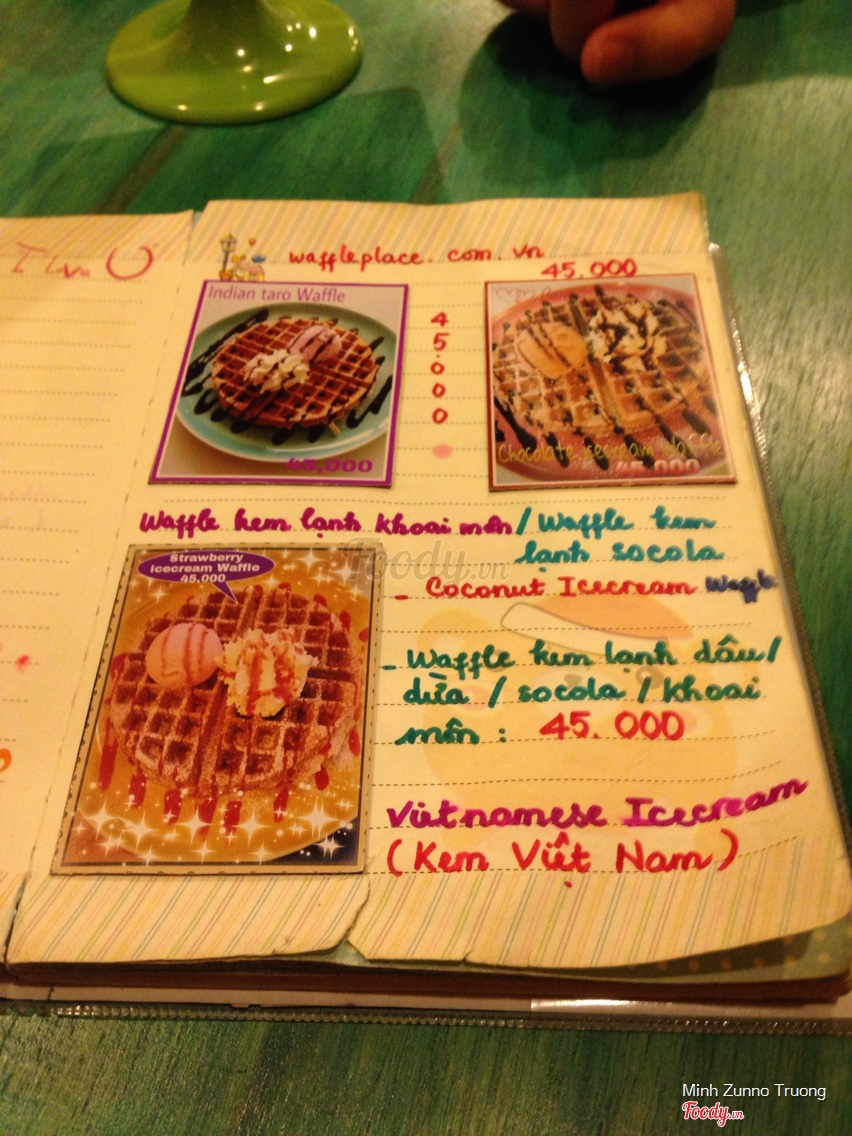 I Love U
waffleplace.com.vn
45.000
Indian taro Waffle
45.000
45,000
Chocolate icecream Waffle
45,000
Waffle kem lạnh khoai môn / Waffle kem
lạnh socola
Strawberry
Icecream Waffle
45,000
Foody.vn
- Coconut Icecream
- Waffle kem lạnh dâu /
dừa / socola / khoai
môn : 45.000
Vietnamese Icecream
(Kem Việt Nam)
Minh Zunno Truong
Foody.vn